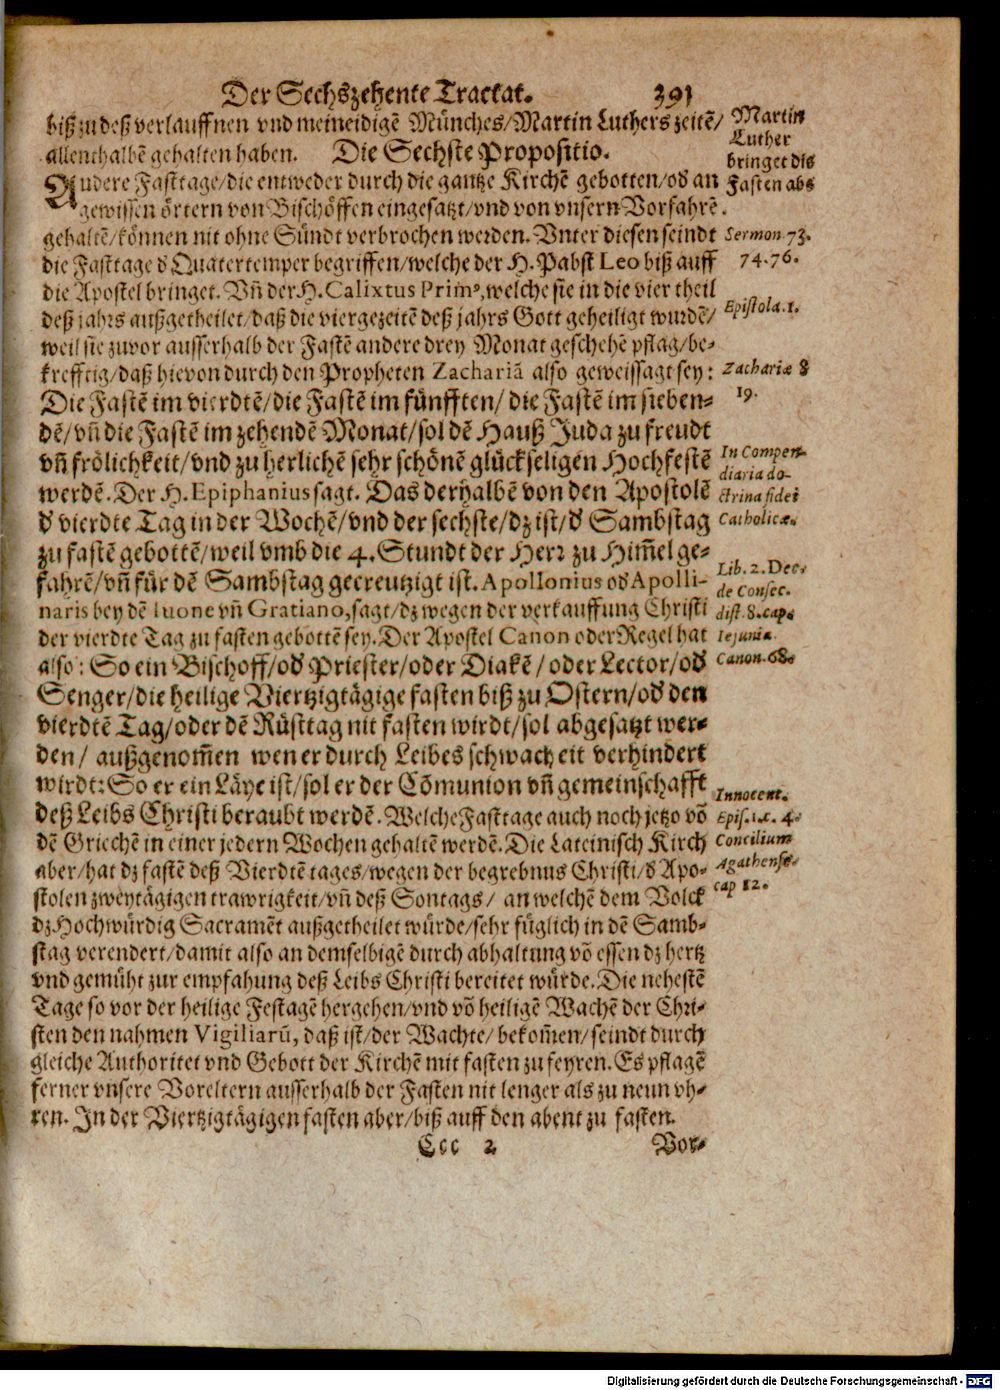 Der Sechszehente Tractat. 391
biß zu deß verlauffnen vnd meineidigē Münches/Martin Luthers zeitē/
allenthalbē gehalten haben. Die Sechste Propositio.
Andere Fasttage/die entweder durch die gantze Kirchē gebotten/od an
gewissen örtern von Bischöffen eingesatzt/vnd von vnsern Vorfahrē
gehaltē/können nit ohne Sündt verbrochen werden. Vnter diesen seindt
die Fasttage d Quatertemper begriffen/welche der H. Pabst Leo biß auff
die Apostel bringet. Vñ der H. Calixtus Primꝰ, welche sie in die vier theil
deß jahrs außgetheilet/daß die viergezeitē deß jahrs Gott geheiligt wurdē/
weil sie zuvor ausserhalb der Fastē andere drey Monat geschehē pflag/be-
krefftig/daß hievon durch den Propheten Zachariā also geweissagt sey:
Die Fastē im vierdtē/die Fastē im fünfften/die Fastē im sieben-
dē/vñ die Fastē im zehendē Monat/sol dē Hauß Juda zu freudt
vñ frölichkeit/vnd zu herlichē sehr schönē glückseligen Hochfestē
werdē. Der H. Epiphanius sagt. Das derhalbē von den Apostolē
d vierdte Tag in der Wochē/vnd der sechste/dz ist/d Sambstag
zu fastē gebottē/weil vmb die 4. Stundt der Herr zu Him̄el ge-
fahrē/vñ für dē Sambstag gecreutzigt ist. Apollonius od Apolli-
naris bey dē Iuone vñ Gratiano, sagt/dz wegen der verkauffung Christi
der vierdte Tag zu fasten gebottē sey. Der Apostel Canon oder Regel hat
also: So ein Bischoff/od Priester/oder Diakē/oder Lector/od
Senger/die heilige Viertzigtägige fasten biß zu Ostern/od den
vierdtē Tag/oder dē Rüsttag nit fasten wirdt/sol abgesatzt wer-
den/ außgenom̄en wen er durch Leibes schwacheit verhindert
wirdt: So er ein Läye ist/sol er der Cōmunion vñ gemeinschafft
deß Leibs Christi beraubt werdē. Welche Fasttage auch noch jetzo vō
dē Griechē in einer jedern Wochen gehaltē werdē. Die Lateinisch Kirch
aber/hat dz fastē deß Vierdtē tages/wegen der begrebnus Christi/d Apo-
stolen zweytägigen trawrigkeit/vñ deß Sontags/ an welchē dem Volck
dz Hochwürdig Sacramēt außgetheilet würde/sehr füglich in dē Samb-
stag verendert/damit also an demselbigē durch abhaltung vō essen dz hertz
vnd gemüht zur empfahung deß Leibs Christi bereitet würde. Die nehestē
Tage so vor der heilige Festagē hergehen/vnd vō heiligē Wachē der Chri-
sten den nahmen Vigiliarū, daß ist/der Wachte/ bekom̄en/seindt durch
gleiche Authoritet vnd Gebott der Kirchē mit fasten zu feyren. Es pflagē
ferner vnsere Voreltern ausserhalb der Fasten nit lenger als zu neun vh-
ren. In der Viertzigtägigen fasten aber/biß auff den abent zu fasten.
Ccc 2 Vor-
Martin
Luther
bringet dis
Fasten abs
Sermon 73.
74. 76.
Epistola. 1.
Zachariæ 8
19.
In Compen-
diaria do-
ctrina fidei
Catholicæ.
Lib. 2. Dec.
de Consec.
dist. 8. cap.
Iejunia
Canon. 68.
Innocent.
Epis. 1. c. 4.
Concilium
Agathense.
cap 12.
Digitalisierung gefördert durch die Deutsche Forschungsgemeinschaft - DFG